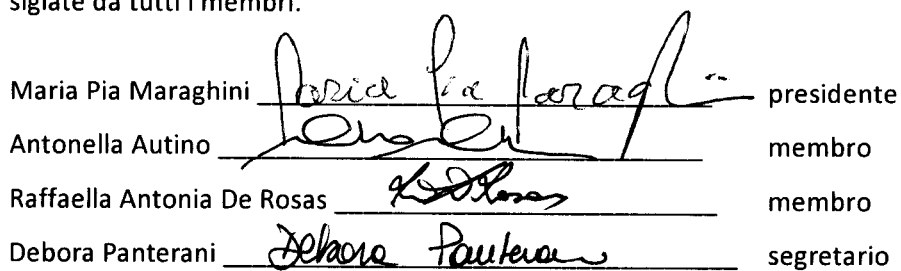 siglate da tutti i membri.
Maria Pia Maraghini Maria Pia Maraghini presidente
Antonella Autino membro
Raffaella Antonia De Rosas De Rosas membro
Debora Panterani Debora Panterani segretario